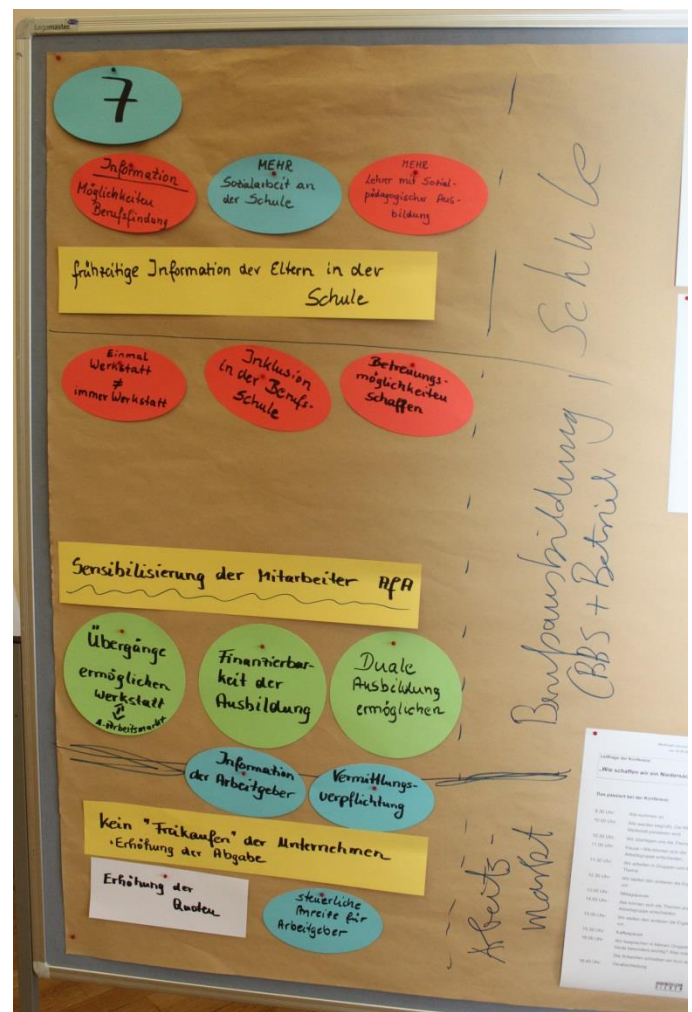 Legamaster
7
Information
Möglichkeiten
Berufsfindung
MEHR
Sozialarbeit an
der Schule
MEHR
Lehrer mit Sozial-
pädagogischer Aus-
bildung
frühzeitige Information der Eltern in der
Schule
Schule
Einmal
Werkstatt
≠
immer Werkstatt
Inklusion
in der Berufs-
Schule
Betreuungs-
möglichkeiten
schaffen
Sensibilisierung der Mitarbeiter AfA
Übergänge
ermöglichen
Werkstatt
A-Arbeitsmarkt
Finanzierbar-
keit der
Ausbildung
Duale
Ausbildung
ermöglichen
Berufsausbildung
(BBS + Betrieb)
Information
der Arbeitgeber
Vermittlungs-
verpflichtung
Kein "Freikaufen" der Unternehmen
· Erhöhung der Abgabe
Erhöhung der
Quoten
steuerliche
Anreize für
Arbeitgeber
Arbeits-
markt
Leitfrage der Konferenz
„Wie schaffen wir ein
Das passiert bei der Konferenz